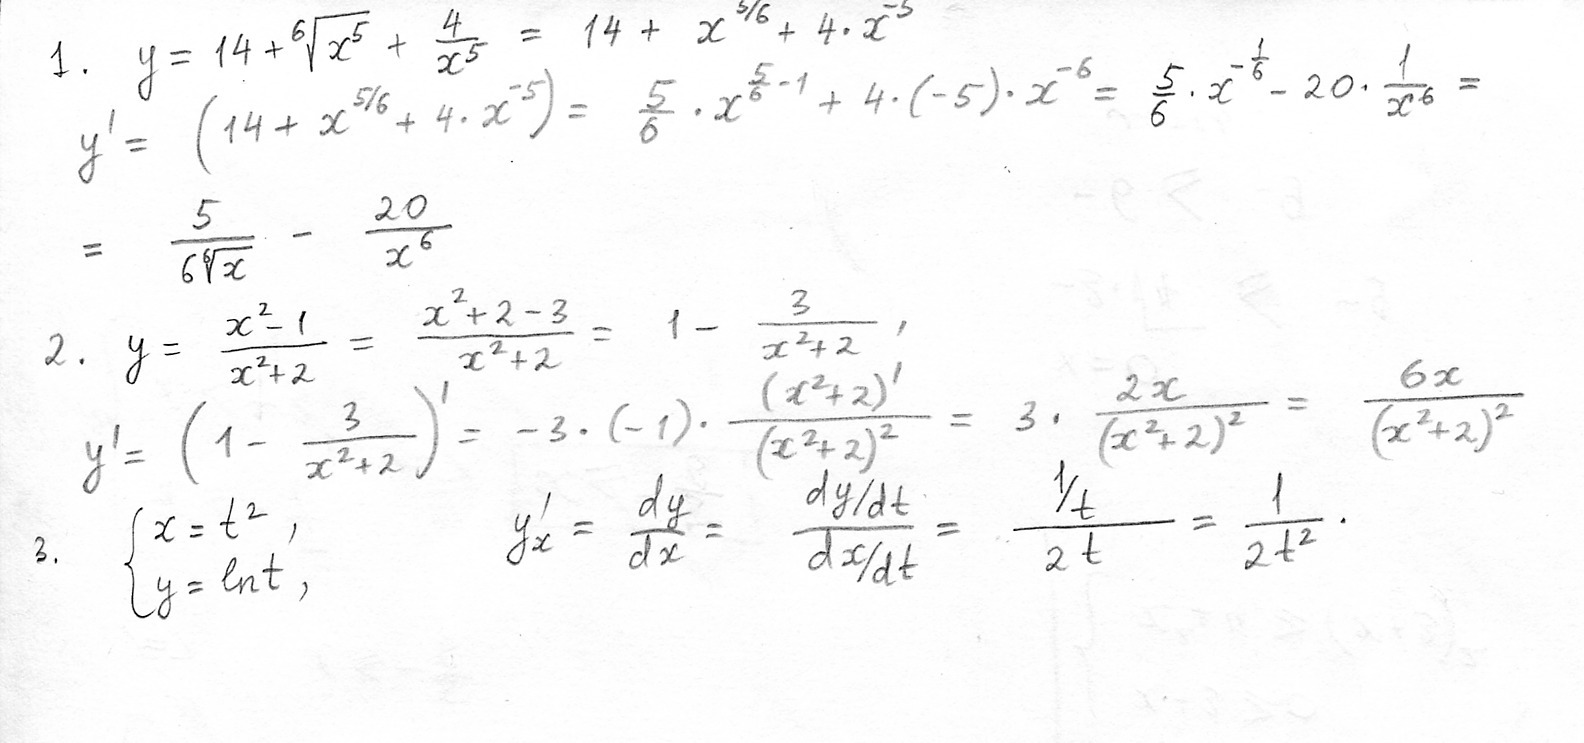 1. y = 14 + ⁶√(x⁵) + 4/x⁵ = 14 + x^(5/6) + 4·x^(-5)
y' = (14 + x^(5/6) + 4·x^(-5)) = 5/6 · x^(5/6 - 1) + 4·(-5)·x^(-6) = 5/6 · x^(-1/6) - 20 · 1/x⁶ =
= 5/(6 ⁶√x) - 20/x⁶
2. y = (x²-1)/(x²+2) = (x²+2-3)/(x²+2) = 1 - 3/(x²+2),
y' = (1 - 3/(x²+2))' = -3·(-1)· (x²+2)'/(x²+2)² = 3 · 2x/(x²+2)² = 6x/(x²+2)²
3. { x = t², y = ln t, y'ₓ = dy/dx = (dy/dt)/(dx/dt) = (1/t)/(2t) = 1/(2t²).